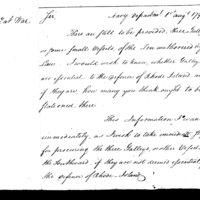 at War.
Sir, Navy Department 1st augt 179
There are still to be provided, three Galleys
or some small Vessels, of the Ten authorized by
Law. I would wish to know, whether Galleys
are essential to the defence of Rhode Island and
if they are, how many you think ought to be
stationed there.
This Information I want
immediately, as I wish to take
for procuring the three Galleys, or other Vessels
the Southward, if they are not deemed essential
the defence of Rhode-Island